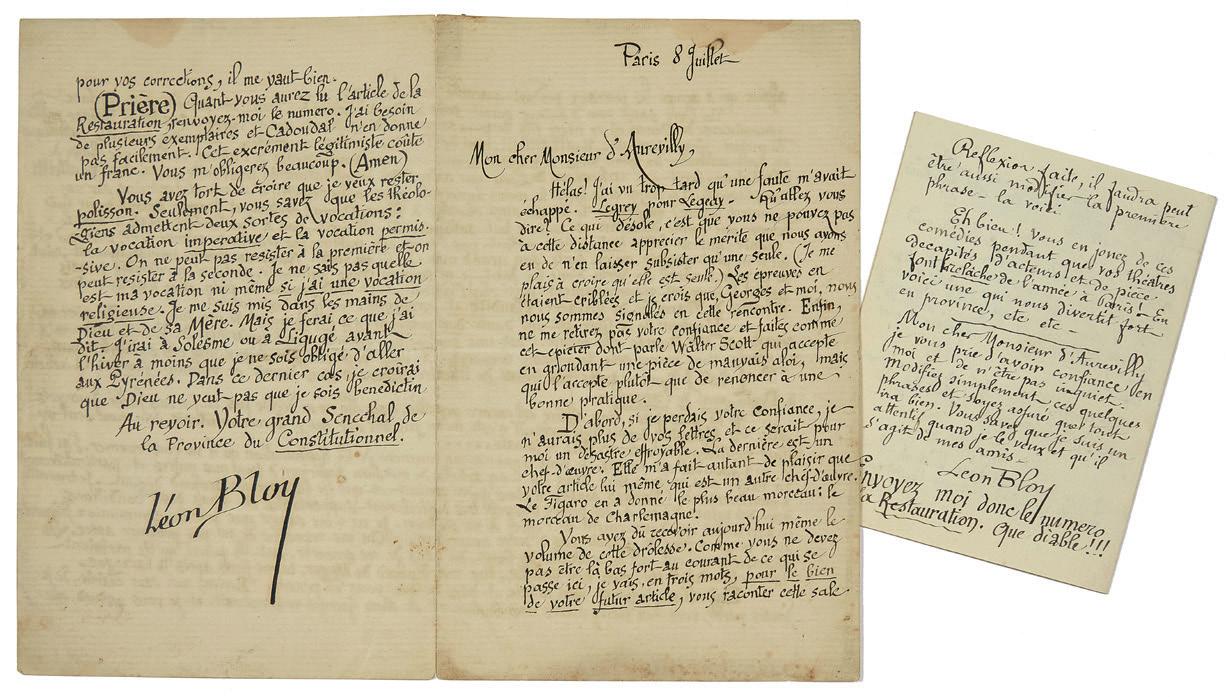 pour vos corrections, il me vaut bien.
(Prière) Quant vous aurez lu l'article de la
Restauration, renvoyez-moi le numero. J'ai besoin
de plusieurs exemplaires et Cadoudal n'en donne
pas facilement. Cet excrément légitimiste coûte
un franc. Vous m'obligerez beaucoup. (Amen)
Vous avez tort de croire que je veux rester
polisson. Seulement, vous savez que les théolo-
giens admettent deux sortes de vocations:
la vocation imperative et la vocation permis-
-sive. On ne peut pas resister à la première et on
peut resister à la seconde. Je ne sais pas quelle
est ma vocation ni même si j'ai une vocation
religieuse. Je me suis mis dans les mains de
Dieu et de sa Mère. Mais je ferai ce que j'ai
dit. J'irai à Solesme ou à Ligugé avant
l'hiver à moins que je ne sois obligé d'aller
aux Pyrénées. Dans ce dernier cas, je croirai
que Dieu ne veut pas que je sois benedictin
Au revoir. Votre grand Senechal de
la Province du Constitutionnel.
Léon Bloy
Paris 8 Juillet
Mon cher Monsieur d'Aurevilly,
Hélas! J'ai vu trop tard qu'une faute m'avait
échappé. Legrey pour Legedy. Qu'allez vous
dire? Ce qui désole, c'est que vous ne pouvez pas
à cette distance apprecier le mérite que nous avons
eu de n'en laisser subsister qu'une seule. (Je me
plais à croire qu'elle est seule.) Les épreuves en
étaient criblées et je crois que, Georges et moi, nous
nous sommes signalés en cette rencontre. Enfin,
ne me retirez pas votre confiance et faites comme
cet epicier dont parle Walter Scott qui accepte
en grondant une pièce de mauvais aloi, mais
qui l'accepte plutôt que de renoncer à une
bonne pratique.
D'abord, si je perdais votre confiance, je
n'aurais plus de vos lettres et ce serait pour
moi un désastre effroyable. La dernière est un
chef-d'œuvre. Elle m'a fait autant de plaisir que
votre article lui même qui est un autre chef-d'œuvre.
Le Figaro en a donné le plus beau morceau: le
morceau de Charlemagne!
Vous avez du recevoir aujourd'hui même le
volume de cette drôlesse. Comme vous ne devez
pas être là bas fort au courant de ce qui se
passe ici, je vais, en trois mots, pour le bien
de votre futur article, vous raconter cette sale
Reflexion faite, il faudra peut
être aussi modifier la première
phrase - la voici
Eh bien! vous en jouez de ces
comédies pendant que vos théâtres
Decapités d'acteurs et de pièce
font relâche de l'année à Paris! En
voici une qui nous divertit fort
en province, etc etc -
Mon cher Monsieur d'Aurevilly,
je vous prie d'avoir confiance en
moi et de n'être pas inquiet.
modifiez simplement ces quelques
phrases et soyez assuré que tout
ira bien. Vous savez que je suis un
attentif quand je le veux et qu'il
s'agit de mes amis -
Léon Bloy
Envoyez moi donc le numero
la Restauration. Que diable!!!